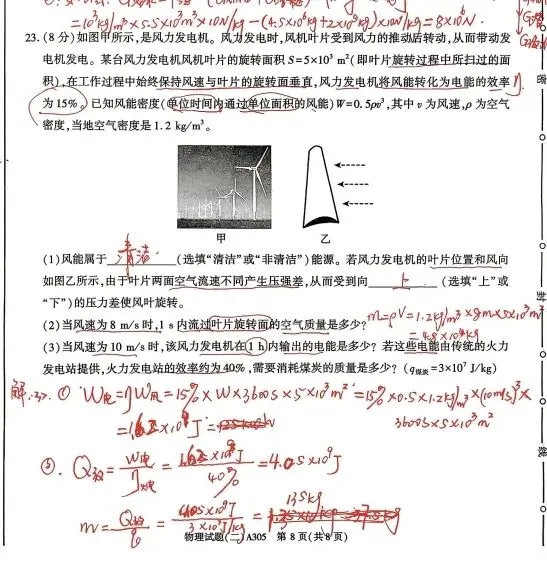 =10³kg/m³×5.5×10³m³×10N/kg-(4.5×10⁶kg+2×10⁶kg)×10N/kg=8×10⁶N.
23.(8分)如图甲所示,是风力发电机。风力发电时,风机叶片受到风力的推动后转动,从而带动发
电机发电。某台风力发电机风机叶片的旋转面积S=5×10³ m²(即叶片旋转过程中所扫过的面
积),在工作过程中始终保持风速与叶片的旋转面垂直,风力发电机将风能转化为电能的效率 η
为15%。已知风能密度(单位时间内通过单位面积的风能)W=0.5ρv³,其中v为风速,ρ为空气
密度,当地空气密度是1.2 kg/m³。
甲 乙
(1)风能属于 清洁 (选填“清洁”或“非清洁”)能源。若风力发电机的叶片位置和风向
如图乙所示,由于叶片两面空气流速不同产生压强差,从而受到向 上 (选填“上”或
“下”)的压力差使风叶旋转。
(2)当风速为8 m/s时,1 s内流过叶片旋转面的空气质量是多少? m=ρV=1.2kg/m³×8m×5×10³m²
=4.8×10⁴kg
(3)当风速为10 m/s时,该风力发电机在1 h内输出的电能是多少?若这些电能由传统的火力
发电站提供,火力发电站的效率约为40%,需要消耗煤炭的质量是多少?(q煤炭=3×10⁷ J/kg)
解:(3).① W电=ηW风=15%×W×3600s×5×10³m²=15%×0.5×1.2kg/m³×(10m/s)³×
3600s×5×10³m²
=1.62×10⁹J
②. Q放=W电/η火电=1.62×10⁹J/40%=4.05×10⁹J
m=Q放/q=4.05×10⁹J/3×10⁷J/kg=135kg
物理试题(二) A305 第8页(共8页)
密
封
线